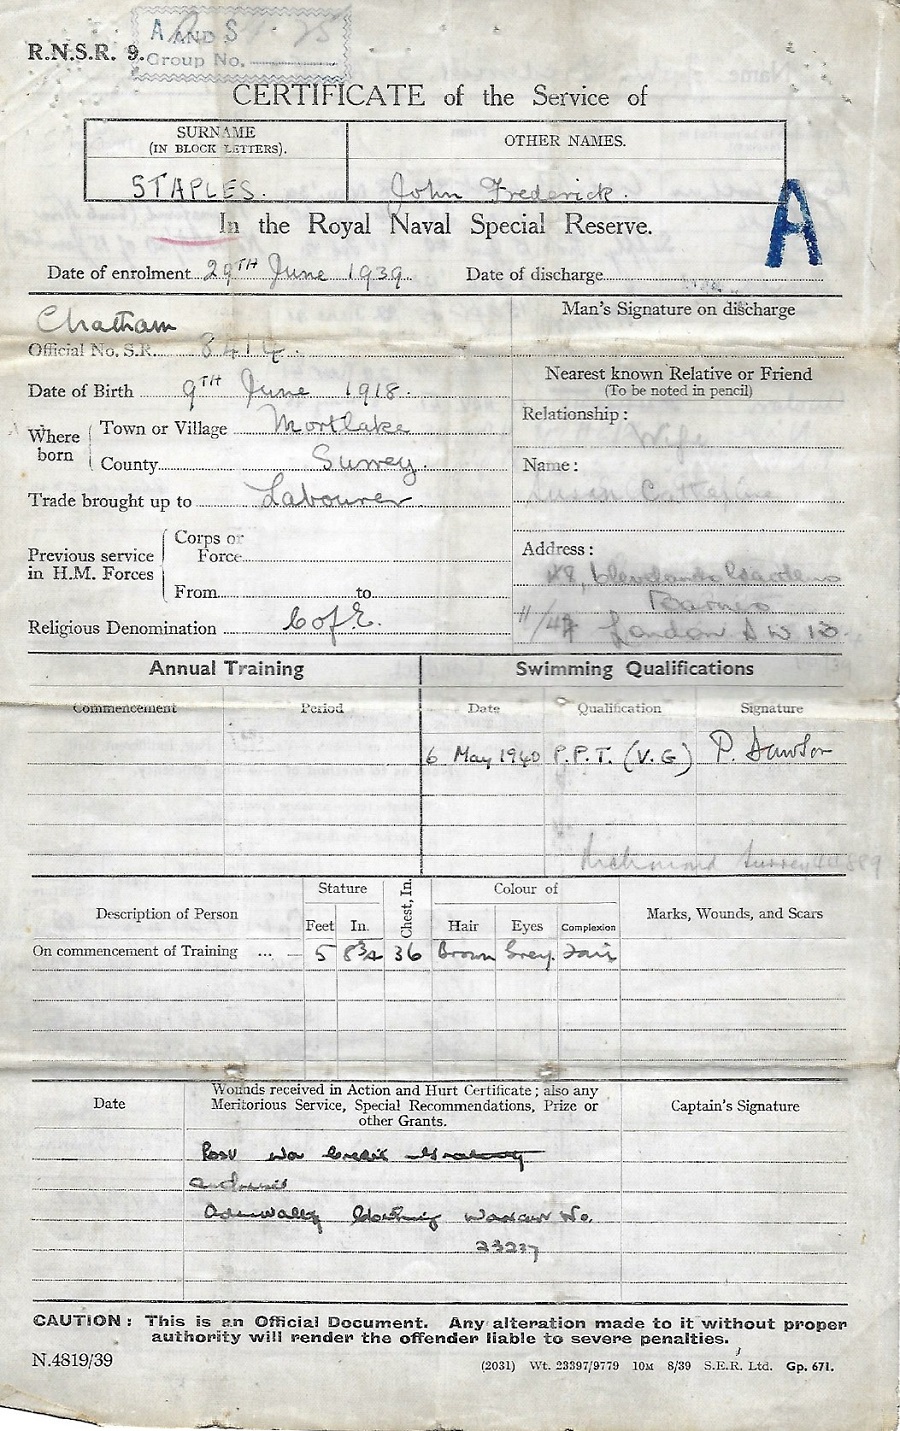 R.N.S.R. 9.
A AND S
Group No.
CERTIFICATE of the Service of
SURNAME
(IN BLOCK LETTERS).
OTHER NAMES.
STAPLES.
John Frederick.
In the Royal Naval Special Reserve.
A
Date of enrolment 29TH June 1939. Date of discharge
Man's Signature on discharge
Chatham
Official No. S.R. 8414.
Date of Birth 9TH June 1918.
Where born
Town or Village Mortlake
County Surrey.
Trade brought up to Labourer
Previous service in H.M. Forces
Corps or Force
From to
Religious Denomination C of E.
Nearest known Relative or Friend
(To be noted in pencil)
Relationship:
Wife
Name:
Susan Catherine
Address:
48, Cleveland Gardens
Barnes
11/47 London S W 13.
Annual Training
Commencement Period
Swimming Qualifications
Date Qualification Signature
6 May 1940 P.P.T. (V.G) P. Dawson
Richmond Surrey
Description of Person
Stature
Feet In.
Chest, In.
Colour of
Hair Eyes Complexion
Marks, Wounds, and Scars
On commencement of Training ... 5 8¾ 36 Brown Grey. Fair
Date
Wounds received in Action and Hurt Certificate; also any
Meritorious Service, Special Recommendations, Prize or
other Grants.
Captain's Signature
Post War Credit Gratuity
Admiralty Clothing Warrant No.
23237
CAUTION: This is an Official Document. Any alteration made to it without proper
authority will render the offender liable to severe penalties.
N.4819/39
(2031) Wt. 23397/9779 10M 8/39 S.E.R. Ltd. Gp. 671.